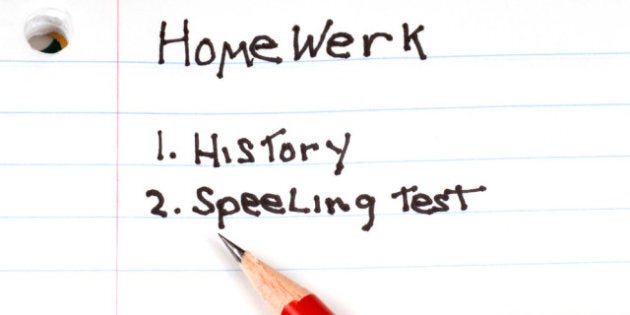 HomeWerk
1. History
2. Speeling Test